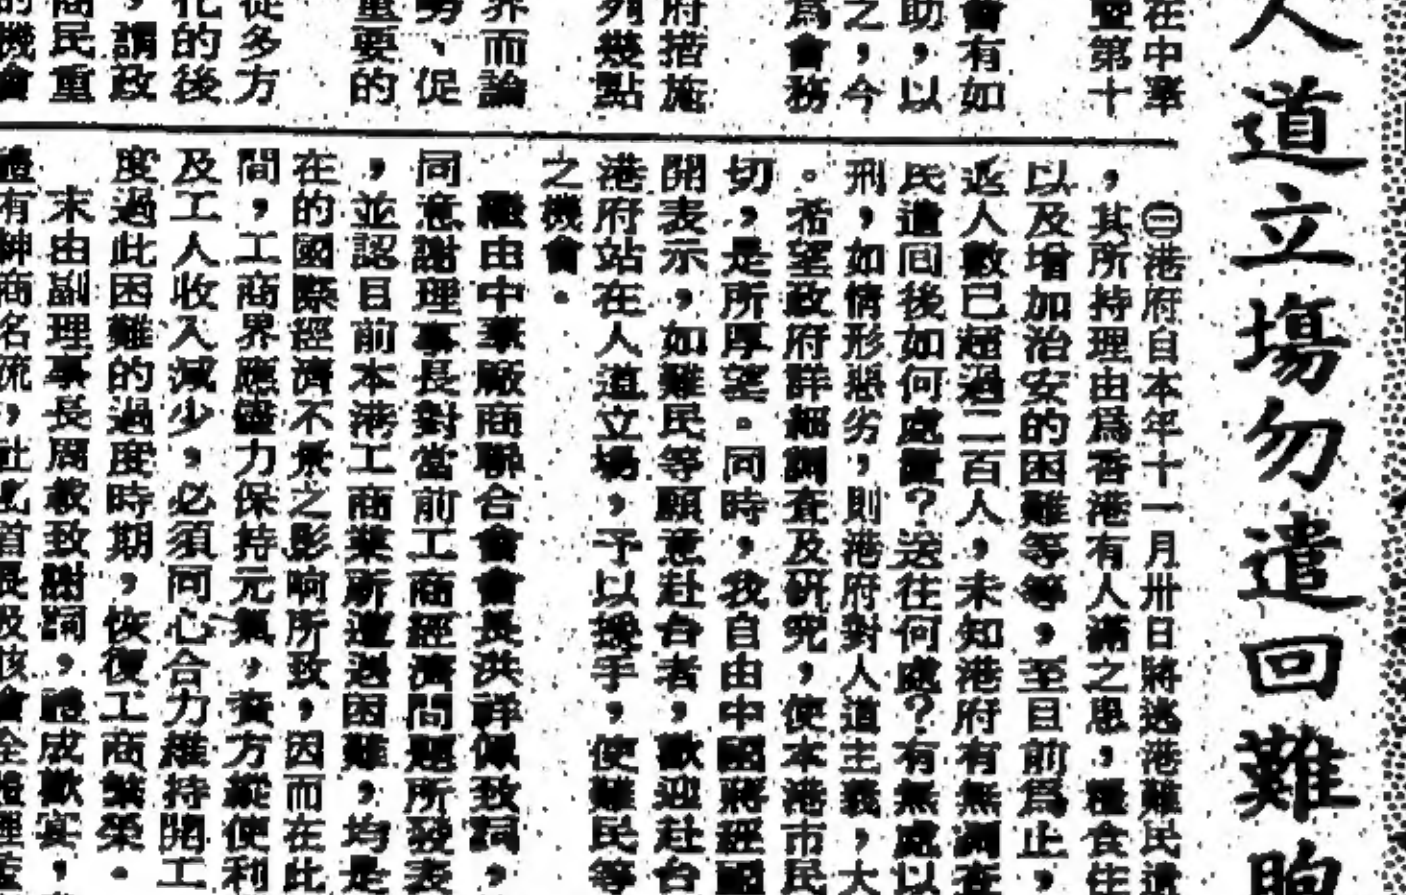 人道立塲勿遣回難胞
在中華
暨第十
會有如
助，以
之，今
爲會務
府措施
列幾點
界而論
勢、促
重要的
從多方
化的後
，謂政
商民重
的機會
㊂港府自本年十一月卅日將逃港難民遣
，其所持理由爲香港有人滿之患，糧食住
以及增加治安的困難等等，至目前爲止，
返人數已超過二百人，未知港府有無調查
民遣回後如何處置？送往何處？有無處以
刑，如情形惡劣，則港府對人道主義，大
。希望政府詳細調查及研究，使本港市民
切，是所厚望。同時，我自由中國蔣經國
開表示，如難民等願意赴台者，歡迎赴台
港府站在人道立場，予以援手，使難民等
之機會。
繼由中華廠商聯合會會長洪祥佩致詞，
同意謝理事長對當前工商經濟問題所發表
，並認目前本港工商業所遭遇困難，均是
在的國際經濟不景之影响所致，因而在此
間，工商界應儘力保持元氣，資方縱使利
及工人收入減少，必須同心合力維持開工
度過此困難的過度時期，恢復工商繁榮。
末由副理事長周 致謝詞，禮成歡宴，
有紳商名流，社 首長及該會全體理監